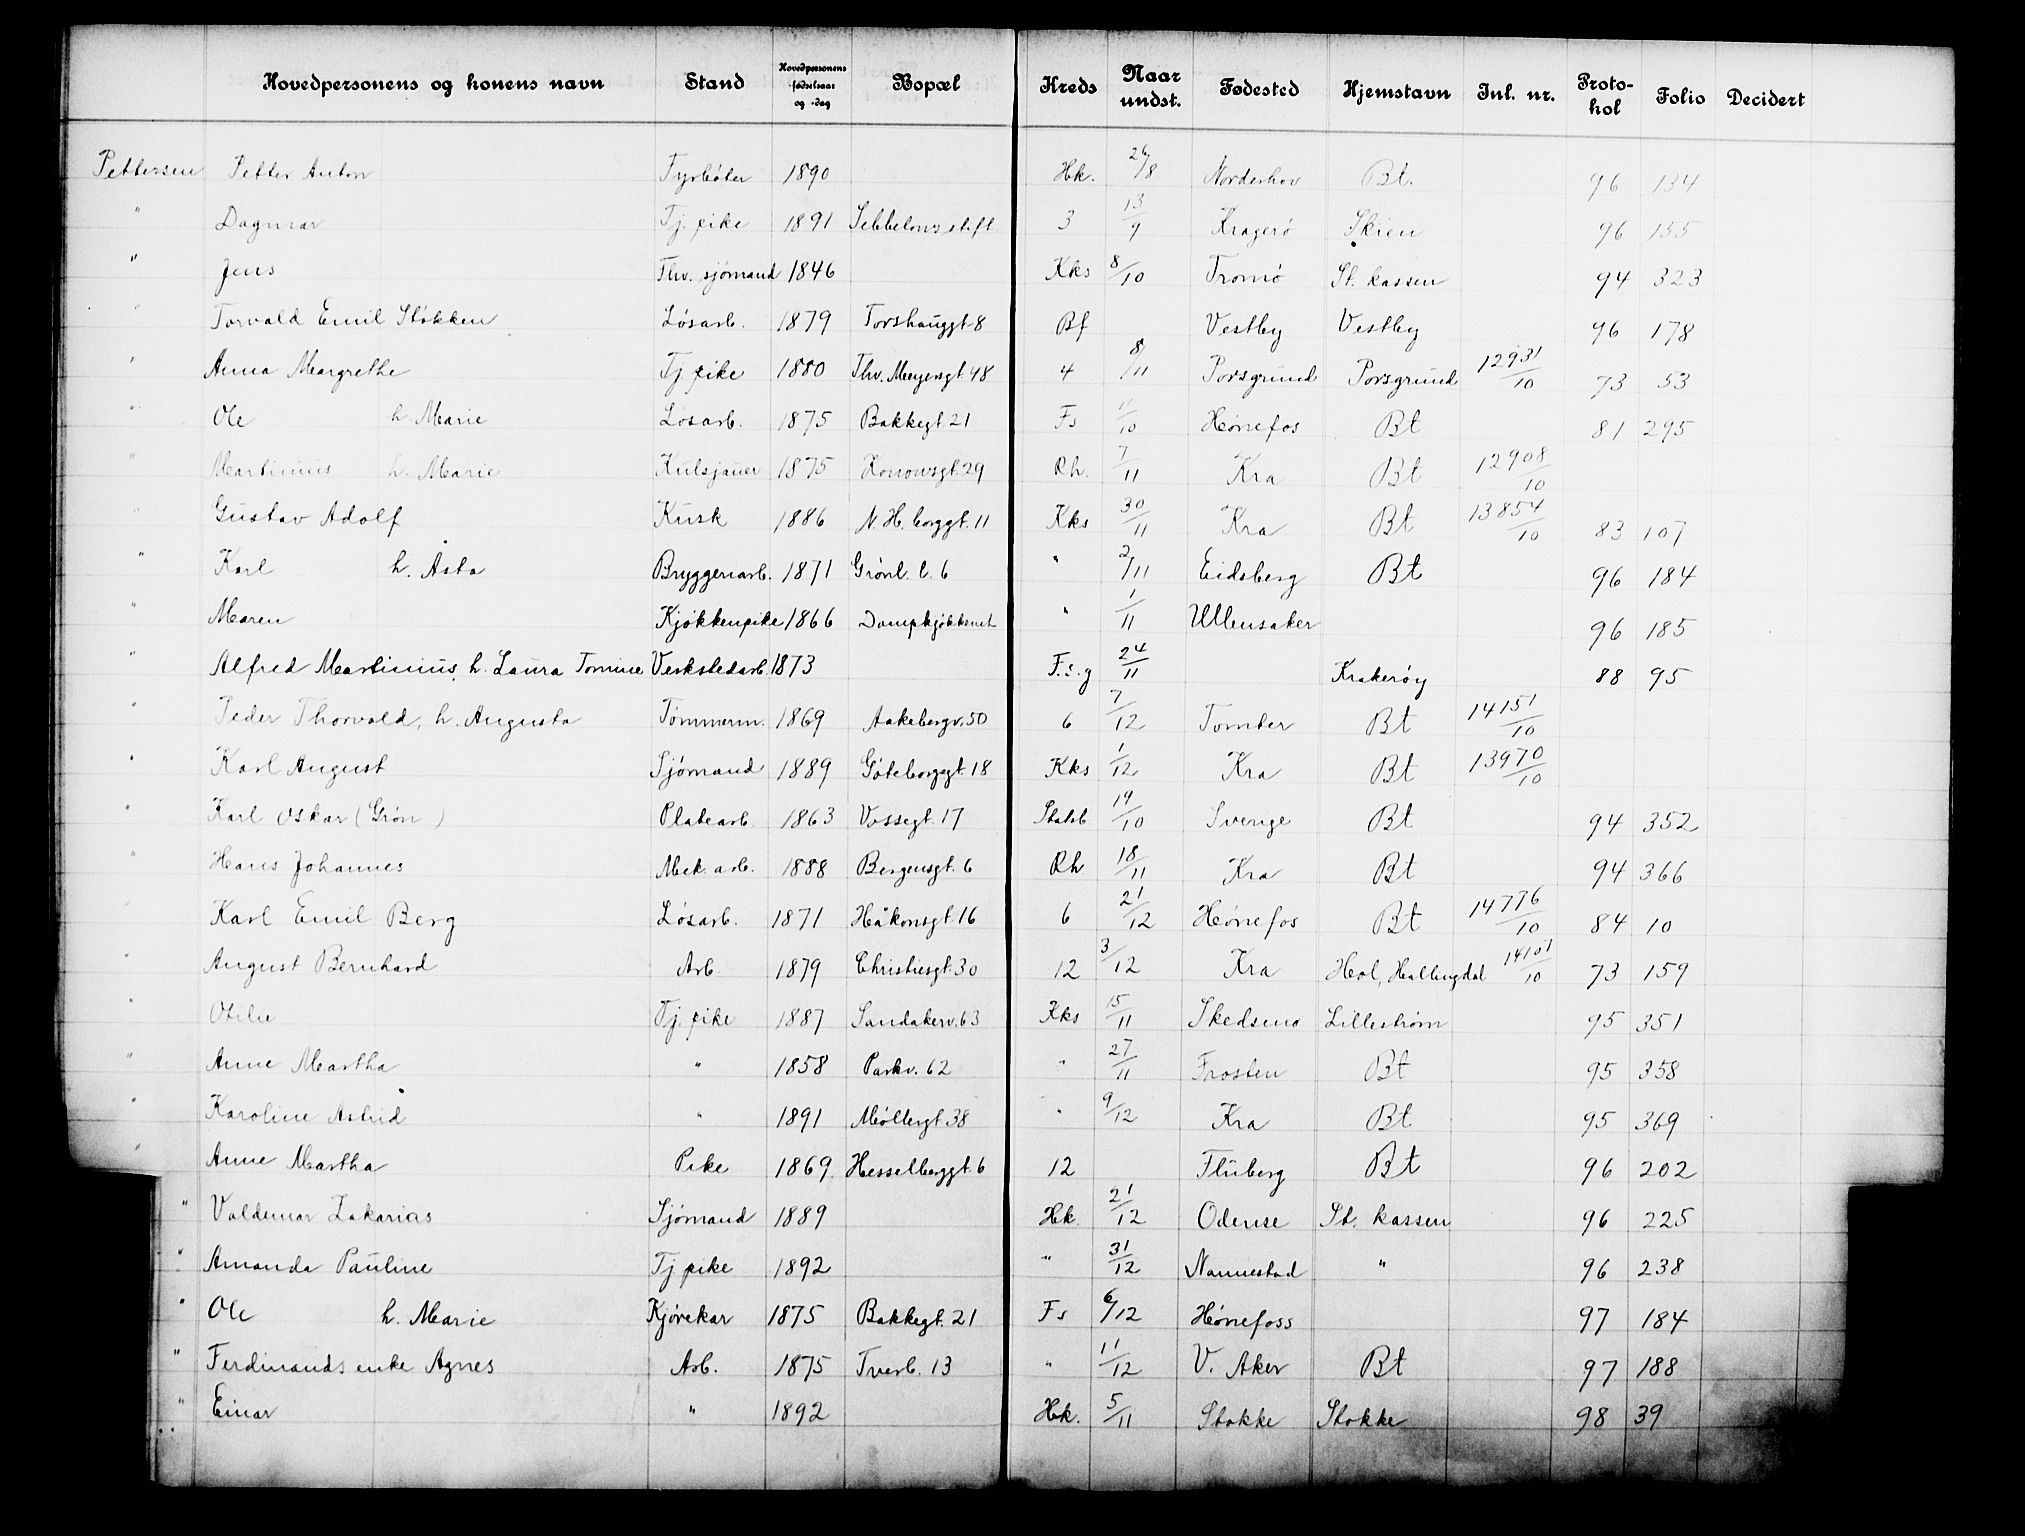 Hovedpersonens og konens navn Stand Hovedpersonens fødselsaar og -dag Bopæl Kreds Naar undst. Fødested Hjemstavn Inl. nr. Protokol Folio Decidert
Pettersen Petter Anton Fyrbøter 1890 Hk. 26/8 Norderhov Bt. 96 134
" Dagmar Tj. pike 1891 Sebbelows stift. 3 13/9 Kragerø Skien 96 155
" Jens Fhv. sjømand 1846 Kks 8/10 Tromø St. kassen 94 323
" Torvald Emil Støkken Løsarb. 1879 Torshauggt 8 Bf Vestby Vestby 96 178
" Anna Margrethe Tj pike 1880 Thv. Meyersgt. 48 4 8/11 Porsgrund Porsgrund 12931/10 73 53
" Ole h. Marie Løsarb. 1875 Bakkegt 21 Fs 11/10 Hønefos Bt 81 295
" Martinius h. Marie Kulsjauer 1875 Korrowsgt. 29 Rh. 7/11 Kra Bt 12908/10
" Gustav Adolf Kusk 1886 N. H. berggt. 11 Kks 30/11 Kra Bt 13854/10 83 107
" Karl h. Åsta Bryggeriarb. 1871 Grønl. l. 6 " 2/11 Eidsberg Bt 96 184
" Maren Kjøkkenpike 1866 Dampkjøkkenet " 1/11 Ullensaker 96 185
" Alfred Martinius, h. Laura Tomine Verkstedarb. 1873 F.s.g 24/11 Krakerøy 88 95
" Peder Thorvald, h. Augusta Tømmerm. 1869 Aakebergv. 50 6 7/12 Tomter Bt 14151/10
" Karl August Sjømand 1889 Gøteborggt. 18 Kks 1/12 Kra Bt 13970/10
" Karl Oskar (Grøn) Platearb. 1863 Vossegt. 17 Statsb 19/10 Sverige Bt 94 352
" Hans Johannes Mek. arb. 1888 Bergensgt. 6 Rh 18/11 Kra Bt 94 366
" Karl Emil Berg Løsarb. 1871 Håkonsgt. 16 6 21/12 Hønefos Bt 14776/10 84 10
" August Bernhard Arb 1879 Christiesgt. 30 12 3/12 Kra Hol, Hallingdal 14107/10 73 159
" Otilie Tj. pike 1887 Sandakerv. 63 Kks 15/11 Skedsmo Lillestrøm 95 351
" Anne Martha " 1858 Parkv. 62 " 27/11 Frosten Bt 95 358
" Karoline Astrid " 1891 Møllergt. 38 " 9/12 Kra Bt 95 369
" Anne Martha Pike 1869 Hesselberggt. 6 12 Fluberg Bt 96 202
" Valdemar Zakarias Sjømand 1889 Hk. 21/12 Odense St. kassen 96 225
" Amanda Pauline Tj pike 1892 " 31/12 Nannestad " 96 238
" Ole h. Marie Kjørekar 1875 Bakkegt. 21 Fs 6/12 Hønefoss 97 184
" Ferdinands enke Agnes Arb. 1875 Tverb. 13 " 11/12 V. Aker Bt 97 188
" Einar " 1892 Hk. 5/11 Stokke Stokke 98 39